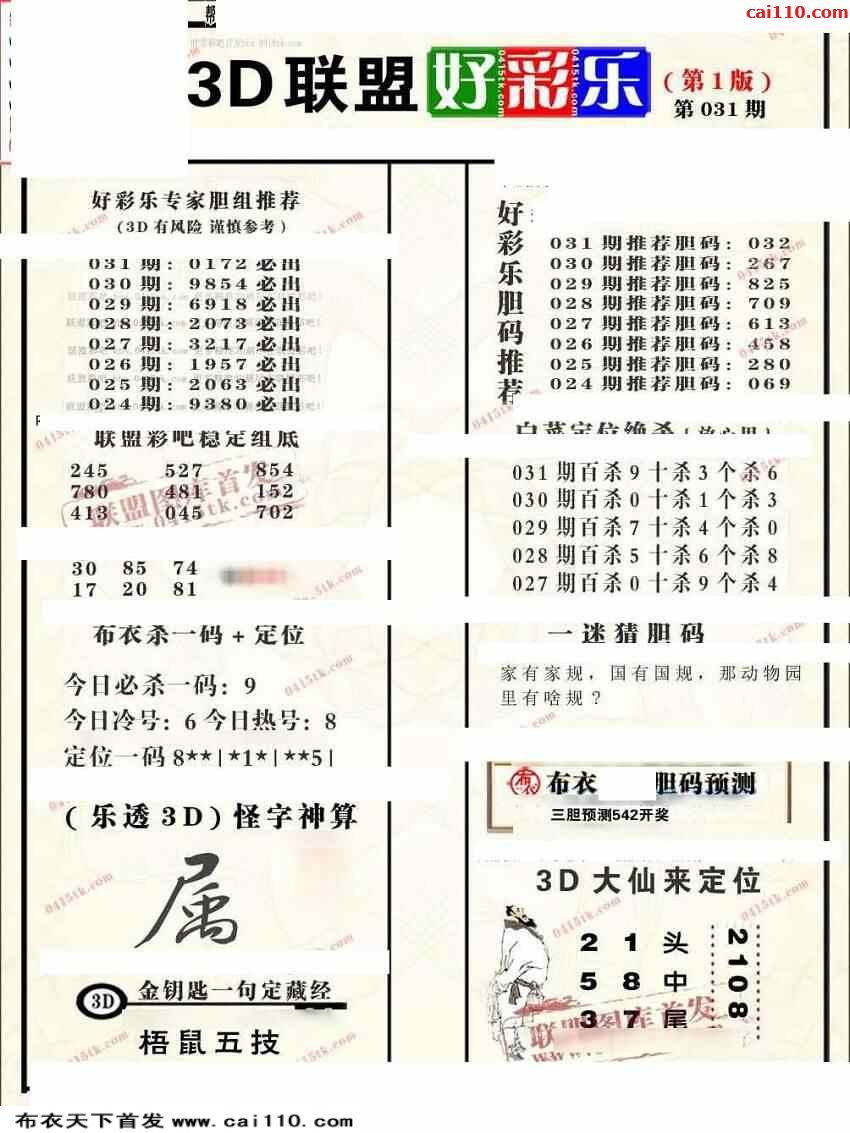 cai110.com
3D联盟好彩乐
(第1版)
第031期
好彩乐专家胆组推荐
(3D有风险 谨慎参考)
031期: 0172必出
030期: 9854必出
029期: 6918必出
028期: 2073必出
027期: 3217必出
026期: 1957必出
025期: 2063必出
024期: 9380必出
联盟彩吧稳定组底
245 527 854
780 481 152
413 045 702
联盟图库首发
30 85 74
17 20 81
布衣杀一码+定位
今日必杀一码: 9
今日冷号: 6 今日热号: 8
定位一码 8**|*1*|**5|
(乐透3D)怪字神算
属
3D 金钥匙一句定藏经
梧鼠五技
好彩乐胆码推荐
031期推荐胆码: 032
030期推荐胆码: 267
029期推荐胆码: 825
028期推荐胆码: 709
027期推荐胆码: 613
026期推荐胆码: 458
025期推荐胆码: 280
024期推荐胆码: 069
031期百杀9十杀3个杀6
030期百杀0十杀1个杀3
029期百杀7十杀4个杀0
028期百杀5十杀6个杀8
027期百杀0十杀9个杀4
一迷猜胆码
家有家规，国有国规，那动物园
里有啥规？
布衣 布衣 胆码预测
三胆预测542开奖
3D大仙来定位
2 1 头
5 8 中
3 7 尾
2108
联盟图库首发
0415tk.com
布衣天下首发 www.cai110.com